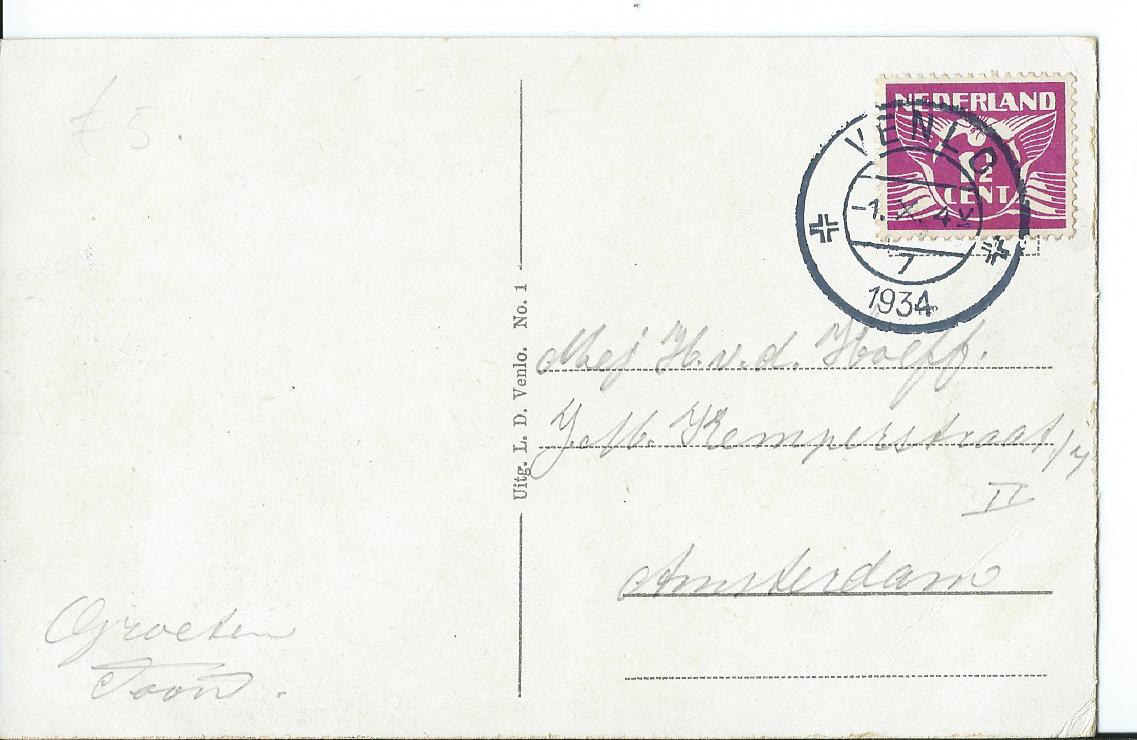 £5.
NEDERLAND
1½
CENT
VENLO
-1.X. 4
7
1934
Uitg. L. D. Venlo. No. 1
Mej H. v. d. Hoeff.
J. M. Kemperstraat
II
Amsterdam
Groeten
Toon.